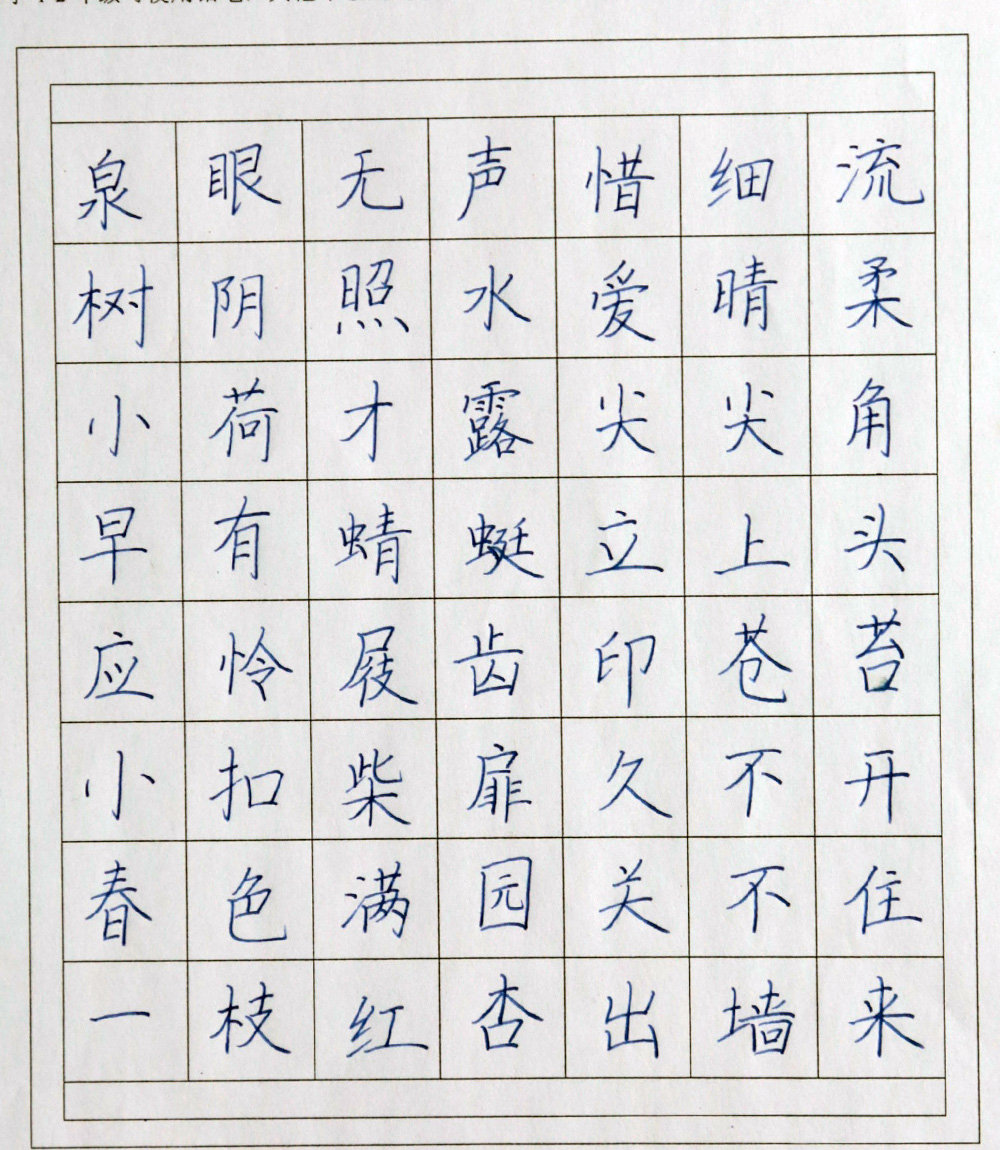 泉眼无声惜细流
树阴照水爱晴柔
小荷才露尖尖角
早有蜻蜓立上头
应怜屐齿印苍苔
小扣柴扉久不开
春色满园关不住
一枝红杏出墙来